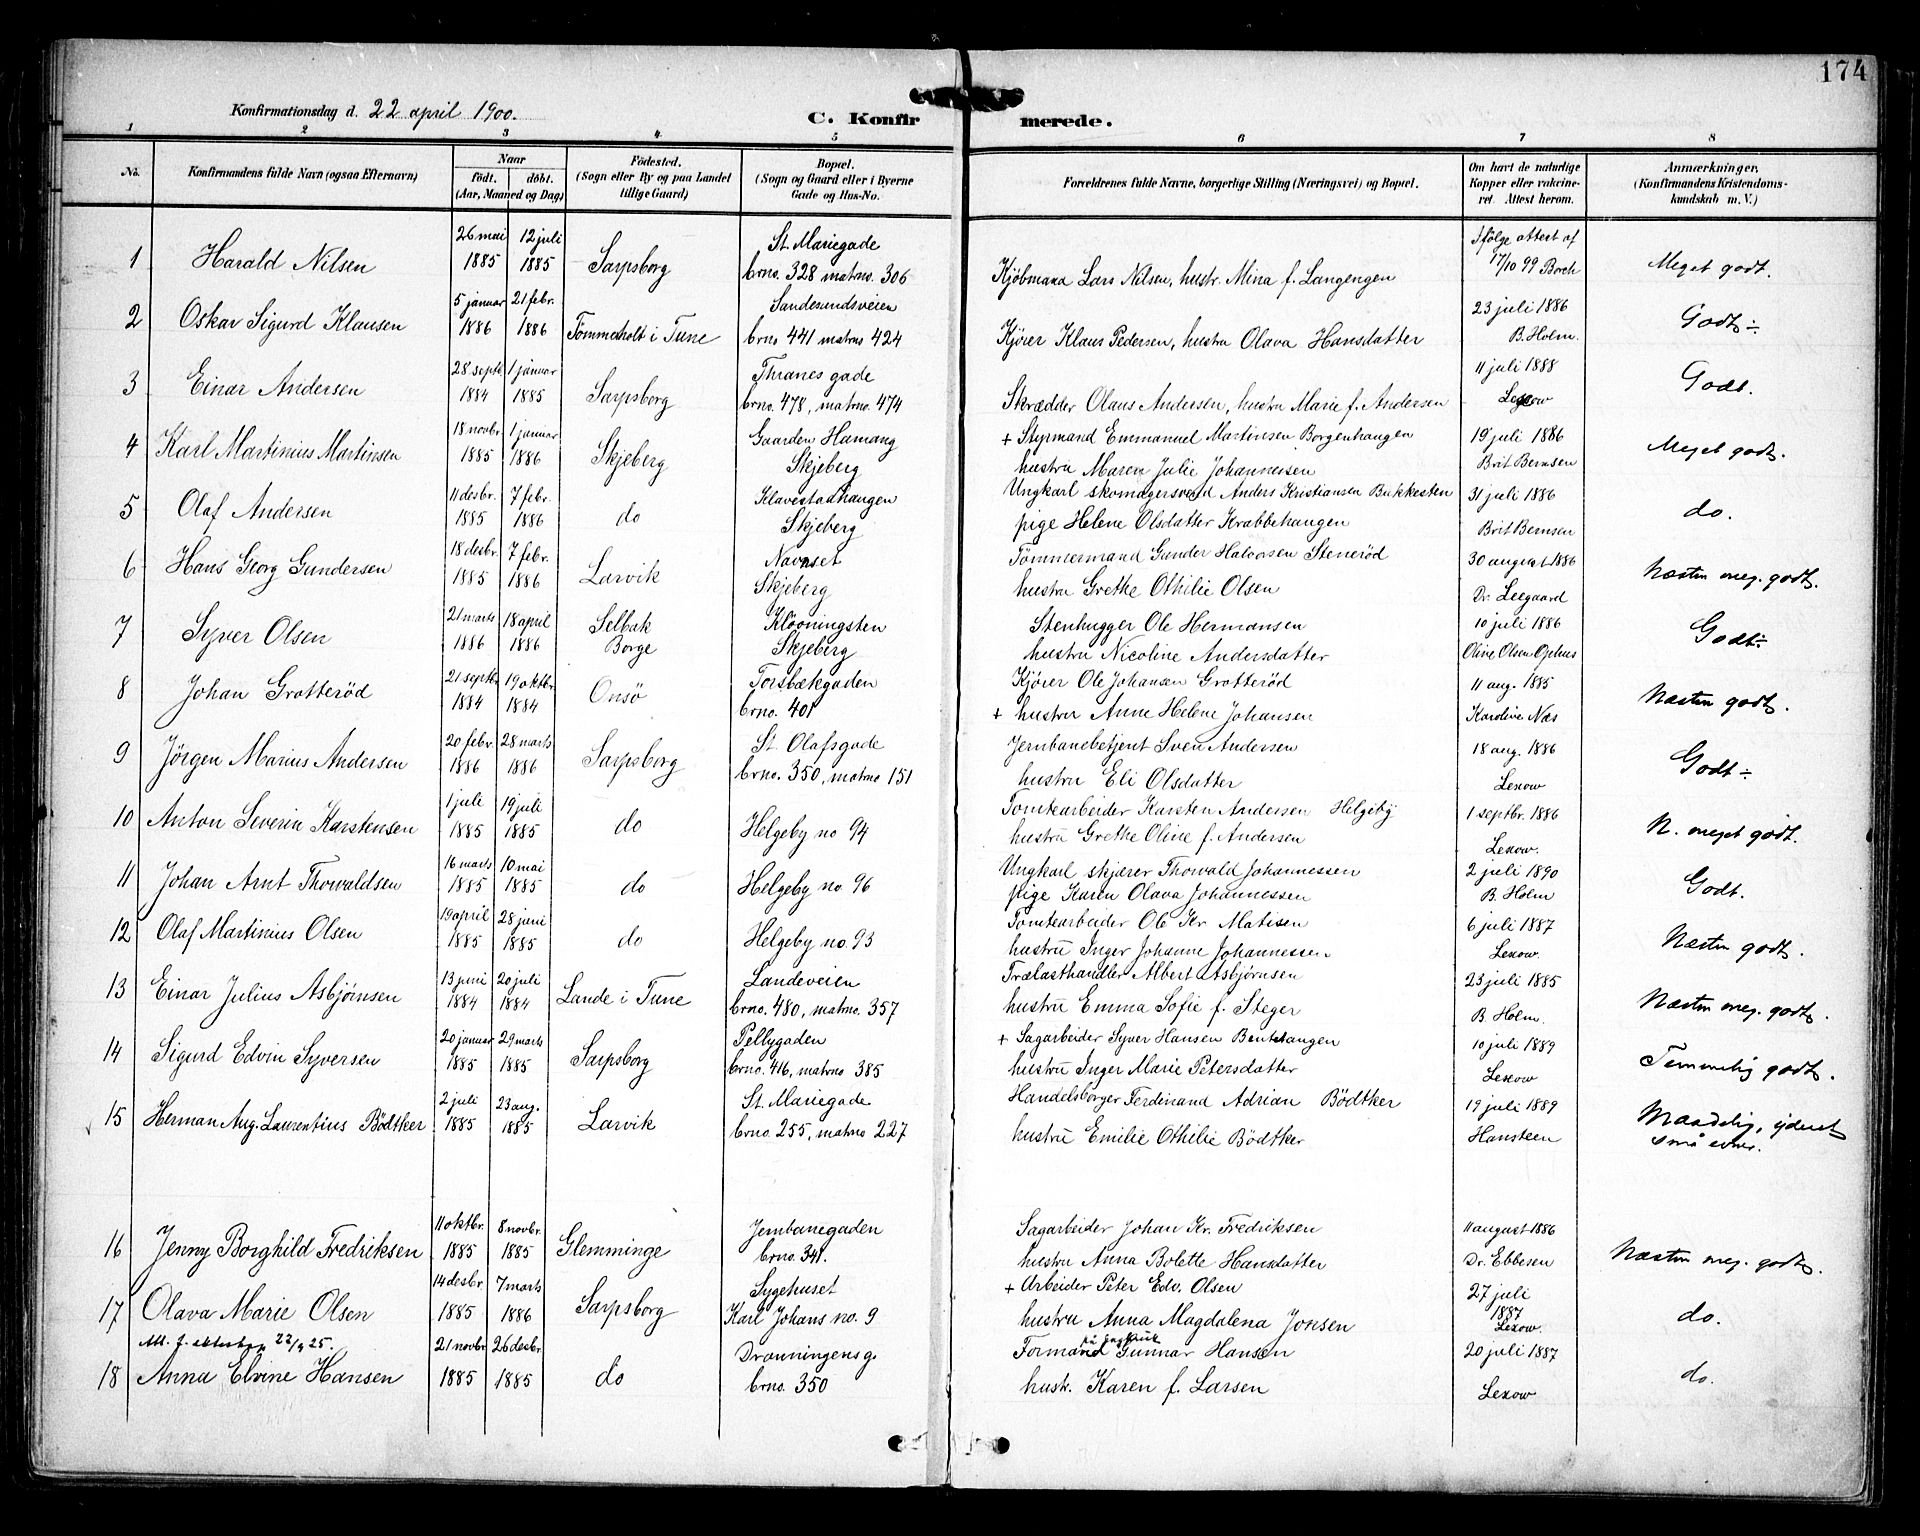 174
Konfirmationsdag d. 22 april 1900.
C. Konfirmerede.
1 2 3 4 5 6 7 8
No. Konfirmandens fulde Navn (ogsaa Efternavn) Naar født. døbt. (Aar, Maaned og Dag) Födested. (Sogn eller By og paa Landet tillige Gaard) Bopæl. (Sogn og Gaard eller i Byerne Gade og Hus-No. Forældrenes fulde Navne, borgerlige Stilling (Næringsvei) og Bopæl. Om havt de naturlige Kopper eller vakcineret. Attest herom. Anmærkninger. (Konfirmandens Kristendomskundskab m. V.)
1 Harald Nilsen 26 mai 1885 12 juli 1885 Sarpsborg St. Mariegade brno. 328 matrno. 306 Kjøbmand Lars Nilsen, hustr. Mina f. Langengen Ifölge attest af 17/10 99 Borch Meget godt.
2 Oskar Sigurd Klausen 5 januar 1886 21 febr. 1886 Tommeholt i Tune Sandesundsveien brno 441 matrno 424 Kjører Klaus Pedersen, hustru Olava Hansdatter 23 juli 1886 B. Holm. Godt ÷
3 Einar Andersen 28 septr. 1884 1 januar 1885 Sarpsborg Thranes gade brno. 478, matrno. 474 Skrædder Olaus Andersen, hustru Marie f. Andersen 11 juli 1888 Lexow Godt.
4 Karl Martinius Martinsen 18 novbr. 1885 1 januar 1886 Skjeberg Gaarden Hamang Skjeberg + Styrmand Emmanuel Martinsen Borgenhaugen hustru Maren Julie Johannesen 19 juli 1886 Brit Bernsen Meget godt.
5 Olaf Andersen 11 desbr. 1885 7 febr. 1886 do Klavestadhaugen Skjeberg Ungkarl skomagersvend Anders Kristiansen Bukkesten pige Helene Olsdatter Krabbehaugen 31 juli 1886 Brit Bernsen do.
6 Hans Georg Gundersen 18 desbr. 1885 7 febr. 1886 Larvik Navnset Skjeberg Tömmermand Gunder Halvorsen Stenerød hustru Grethe Othilie Olsen 30 august 1886 Dr. Leegaard Næsten meg. godt.
7 Syver Olsen 21 marts 1886 18 april 1886 Selbak Borge Klövningsten Skjeberg Stenhugger Ole Hermansen hustru Nicoline Andersdatter 10 juli 1886 Oline Olsen Ophus Godt ÷
8 Johan Grotterød 21 septbr. 1884 19 oktbr. 1884 Onsö Torsbækgaden brno. 401 Kjører Ole Johansen Grotterød + hustru Anne Helene Johansen 11 aug. 1885 Karoline Næs Næsten godt.
9 Jörgen Marius Andersen 20 febr. 1886 28 marts 1886 Sarpsborg St. Olafsgade brno. 350, matrno 151 Jernbanebetjent Sven Andersen hustru Eli Olsdatter 18 aug. 1886 Lexow. Godt ÷
10 Anton Severin Karstensen 1 juli 1885 19 juli 1885 do Helgeby no 94 Tomtearbeider Karsten Andersen Helgeby hustru Grethe Oline f. Andersen 1 septbr. 1886 Lexow. N. meget godt.
11 Johan Arnt Thowaldsen 16 marts 1885 10 mai 1885 do Helgeby no 96 Ungkarl skjærer Thowald Johannessen pige Karen Olava Johannessen 2 juli 1890 B. Holm Godt.
12 Olaf Martinius Olsen 19 april 1885 28 juni 1885 do Helgeby no. 93 Tomtearbeider Ole Kr. Matisen hustru Inger Johanne Johannessen 6 juli 1887 Lexow. Næsten godt.
13 Einar Julius Asbjørnsen 13 juni 1884 20 juli 1884 Lande i Tune Landeveien brno. 480, matrno. 357 Trælasthandler Albert Asbjørnsen hustru Emma Sofie f. Steger 23 juli 1885 B. Holm. Næsten meg. godt.
14 Sigurd Edvin Syversen 20 januar 1885 29 marts 1885 Sarpsborg Pellygaden brno. 416, matrno 385 + Sagarbeider Syver Hansen Benthaugen hustru Inger Marie Petersdatter 10 juli 1889 Lexow Temmelig godt.
15 Herman Aug. Laurentius Bödtker 2 juli 1885 23 aug. 1885 Larvik St. Mariegade brno. 255, matrno 227 Handelsborger Ferdinand Adrian Bödtker hustru Emilie Othilie Bödtker 19 juli 1889 Hansteen Maadelig, yderst små evner.
16 Jenny Borghild Fredriksen 11 oktbr. 1885 8 novbr. 1885 Glemminge Jernbanegaden brno. 341. Sagarbeider Johan Kr. Fredriksen hustru Anna Bolette Hansdatter 11 august 1886 Dr. Ebbesen Næsten meg. godt.
17 Olava Marie Olsen 14 desbr. 1885 7 marts 1886 Sarpsborg Sygehuset Karl Johans no. 9 + Arbeider Peter Edv. Olsen hustru Anna Magdalena Jonsen 27 juli 1887 Lexow. do.
Att. f. 22/9 25.
18 Anna Elvine Hansen 21 novbr 1885 26 desbr. 1885 do Dronningensg. brno. 350 Formand Gunnar Hansen hustr. Karen f. Larsen 20 juli 1887 Lexow do.